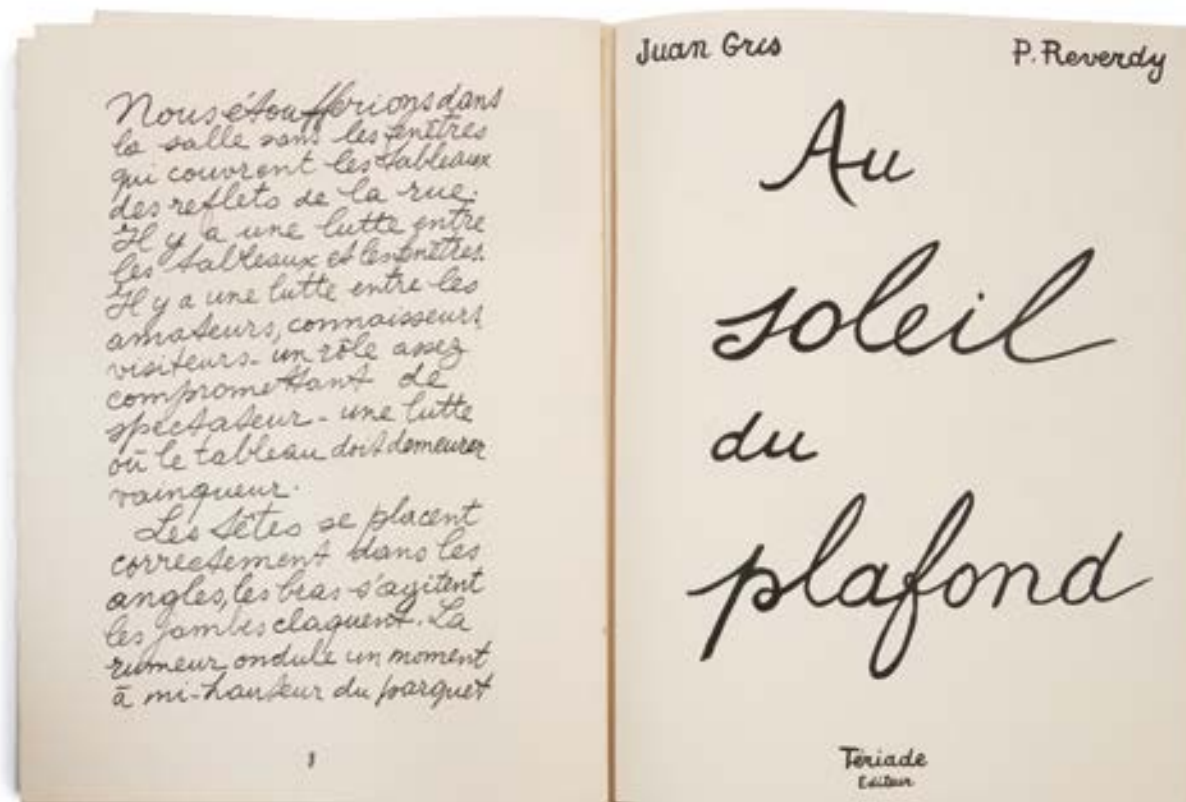 Nous étoufferions dans
la salle sans les fenêtres
qui couvrent les tableaux
des reflets de la rue.
Il y a une lutte entre
les tableaux et les fenêtres.
Il y a une lutte entre les
amateurs, connaisseurs
visiteurs - un rôle assez
compromettant de
spectateur - une lutte
où le tableau doit demeurer
vainqueur.
Les têtes se placent
correctement dans les
angles, les bras s'agitent
les jambes claquent. La
rumeur ondule un moment
à mi-hauteur du parquet
Juan Gris P. Reverdy
Au
soleil
du
plafond
Tériade
Editeur